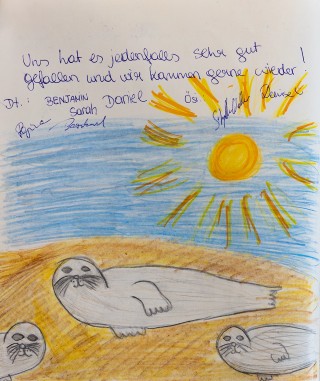 Uns hat es jedenfalls sehr gut
gefallen und wir kommen gerne wieder!
Dt.: BENJAMIN Daniel Ös.
Sarah